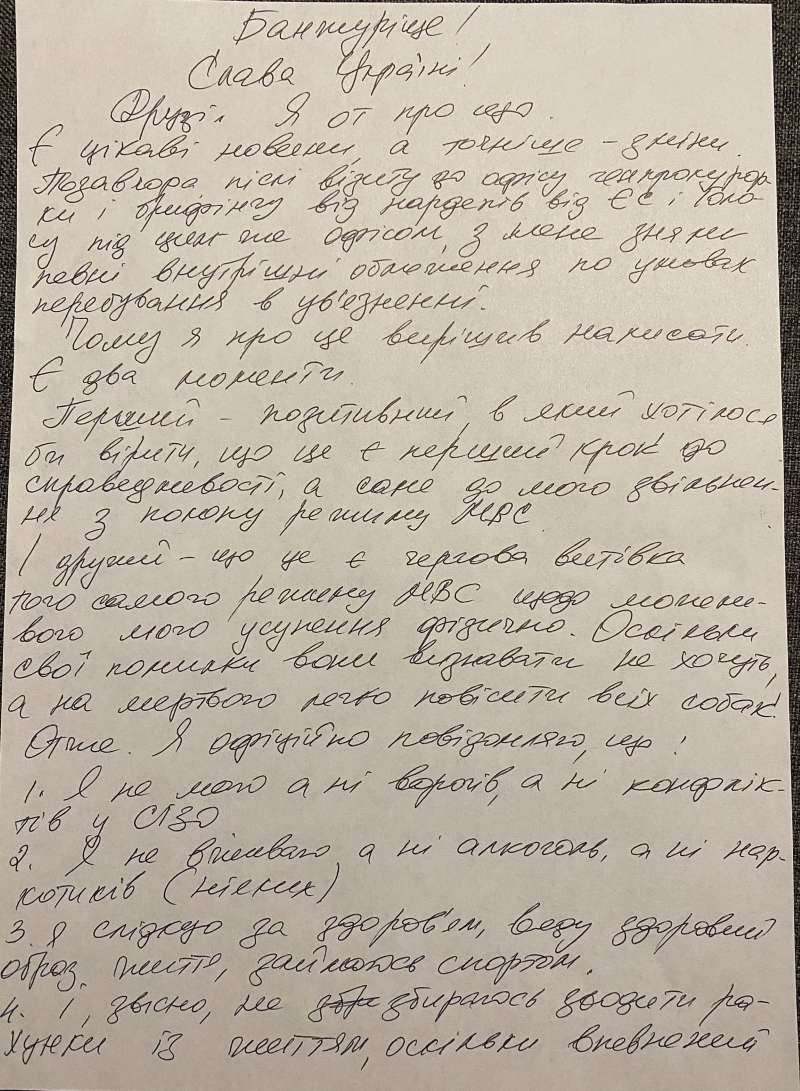 Банжуріще!
Слава Україні!
Друзі. Я от про що.
Є цікаві новини, а точніше – зміни.
Позавчора після візиту до офісу генпрокурор-
ки і брифінгу від нардепів від ЄС і Голо-
су під цим же офісом, з мене зняли
певні внутрішні обмеження по умовах
перебування в ув'язненні.
Чому я про це вирішив написати.
Є два моменти.
Перший – позитивний, в який хотілося
би вірити, що це є перший крок до
справедливості, а саме до мого звільнен-
ня з полону режиму МВС
І другий – що це є чергова витівка
того самого режиму МВС щодо можли-
вого мого усунення фізично. Оскільки
свої помилки вони визнавати не хочуть,
а на мертвого легко повісити всіх собак.
Отже. Я офіційно повідомляю, що:
1. Я не маю а ні ворогів, а ні конфлік-
тів у СІЗО
2. Я не вживаю а ні алкоголь, а ні нар-
котиків (ніяких)
3. Я слідкую за здоров'ям, веду здоровий
образ життя, займаюсь спортом.
4. І, звісно, не збираюсь зводити ра-
хунки із життям, оскільки впевнений